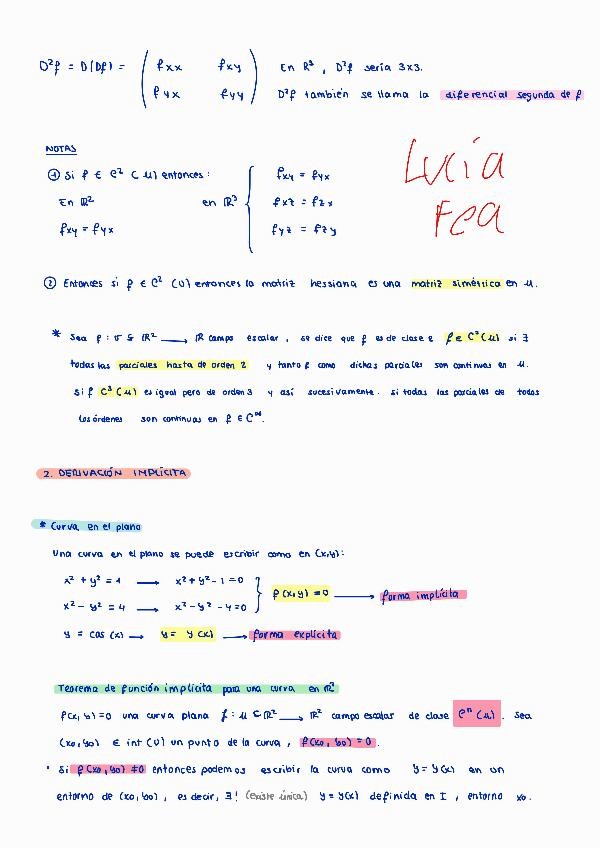 D²f = D(Df) = ( fxx fxy ) En R³, D²f sería 3x3.
( fyx fyy ) D²f también se llama la diferencial segunda de f
NOTAS
① Si f ∈ C² (U) entonces: { fxy = fyx
En R² en R³ { fxz = fzx
fxy = fyx { fyz = fzy
Lucía
Fea
② Entonces si f ∈ C² (U) entonces la matriz hessiana es una matriz simétrica en U.
* Sea f: U ⊆ R² → R campo escalar, se dice que f es de clase 2 f ∈ C²(U) si ∃
todas las parciales hasta de orden 2 y tanto f como dichas parciales son continuas en U.
Si f C³(U) es igual pero de orden 3 y así sucesivamente. Si todas las parciales de todos
los órdenes son continuas en f ∈ C^∞.
2. DERIVACIÓN IMPLÍCITA
* Curva en el plano
Una curva en el plano se puede escribir como en (x,y):
x² + y² = 1 → x² + y² - 1 = 0 }
f(x,y) = 0 → forma implícita
x² - y² = 4 → x² - y² - 4 = 0 }
y = cos(x) → y = y(x) → forma explícita
Teorema de función implícita para una curva en R²
f(x,y)=0 una curva plana f: U ⊆ R² → R² campo escalar de clase Cⁿ(U). Sea
(x0,y0) ∈ int(U) un punto de la curva, f(x0,y0) = 0.
· Si f(x0,y0) ≠ 0 entonces podemos escribir la curva como y = y(x) en un
entorno de (x0,y0), es decir, ∃! (existe única) y = y(x) definida en I, entorno x0.